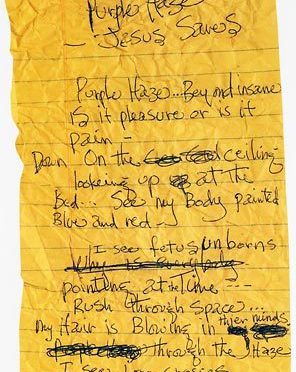 Purple Haze
- Jesus Saves
Purple Haze... Beyond insane
is it pleasure or is it
pain -
Down On the ceiling
looking up at the
Bed... See my Body painted
Blue and red.
I see fetus unborns
Why is everybody
pointing at the time ---
Rush through space...
my Hair is Blowing in thier minds
through the Haze
I see